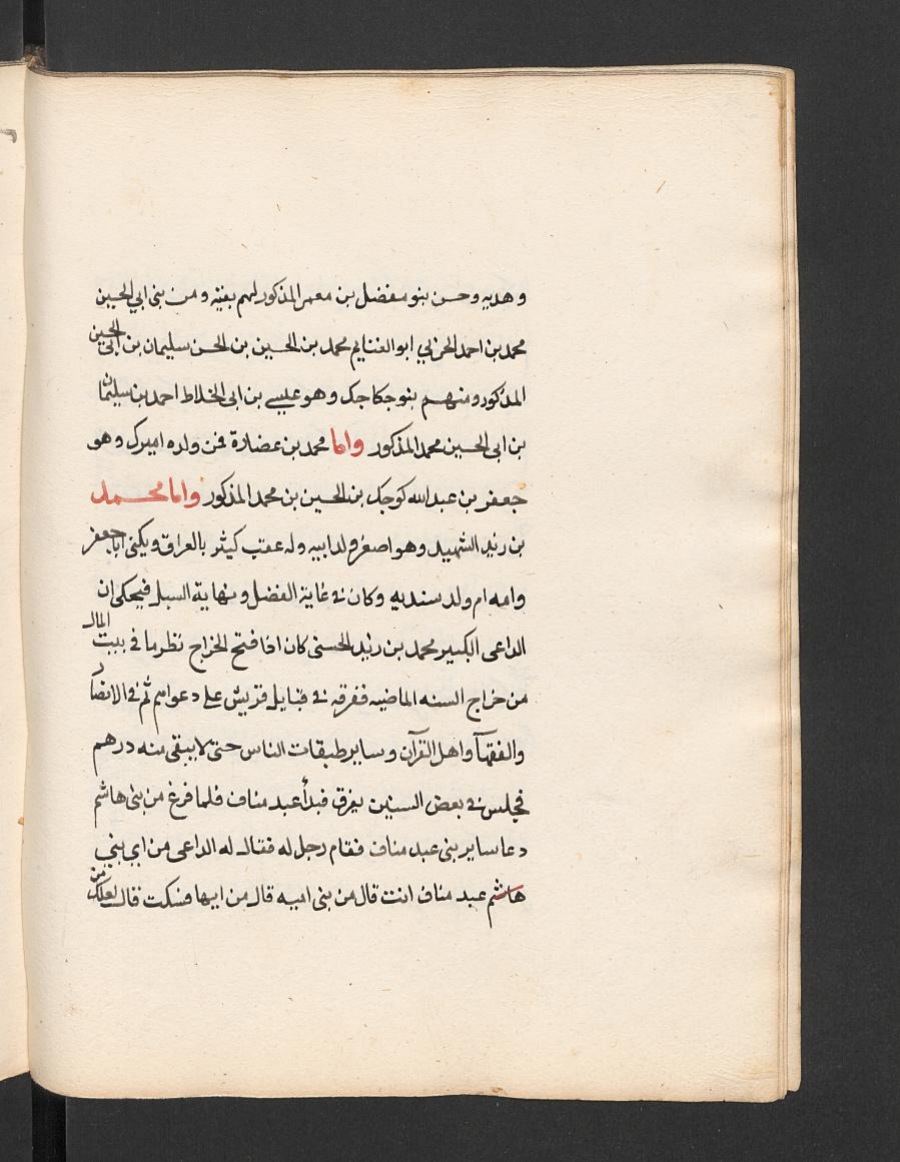 وهديه وحسن بنو مفضل بن معمر المذكور لهم بقيه ومن بنى ابي الحسين
محمد بن احمد الحربي ابو الغنايم محمد بن الحسين بن الحسن سليمان بن ابى الحسين
المذكور ومنهم بنو جكاجك وهو عيسى بن ابى الخلاط احمد بن سليمان
بن ابى الحسين محمد المذكور واما محمد بن عضارة فمن ولده اميرك وهو
جعفر بن عبد الله كوجك بن الحسين بن محمد المذكور واما محمد
بن زيد الشهيد وهو اصغر ولد ابيه وله عقب كيثر بالعراق ويكنى ابا جعفر
وامه ام ولد سنديه وكان فى غاية الفضل ونهاية السبل فيحكى ان
الداعى الكبير محمد بن زيد الحسنى كان اذا فتح الخراج نظر ما فى بيت المال
من خراج السنه الماضيه ففرقه فى قبايل قريش على دعواهم ثم فى الانصار
والفقهآ واهل القرآن وساير طبقات الناس حتى لا يبقى منه درهم
فجلس فى بعض السنين يفرق فبدأ عبد مناف فلما فرغ من بنى هاشم
دعا ساير بنى عبد مناف فقام رجل له فقال له الداعى من اي بني
هاشم عبد مناف انت قال من بنى اميه قال من ايها فسكت فقال لعلك من